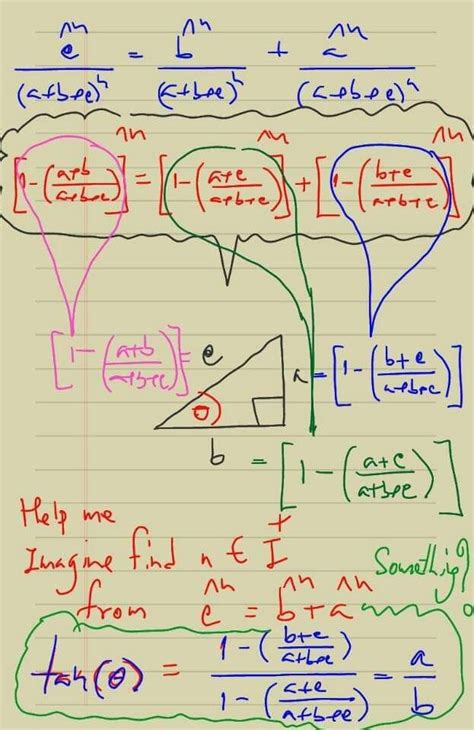 e^n/(a+b+e)^n = b^n/(a+b+e)^n + a^n/(a+b+e)^n
[1-((a+b)/(a+b+e))]^n = [1-((a+e)/(a+b+e))]^n + [1-((b+e)/(a+b+e))]^n
[1-((a+b)/(a+b+e))] = e
a = [1-((b+e)/(a+b+e))]
θ
b = [1-((a+e)/(a+b+e))]
Help me
Imagine find n ∈ I^+
Something?
from e^n = b^n + a^n
tan(θ) = (1-((b+e)/(a+b+e)))/(1-((a+e)/(a+b+e))) = a/b